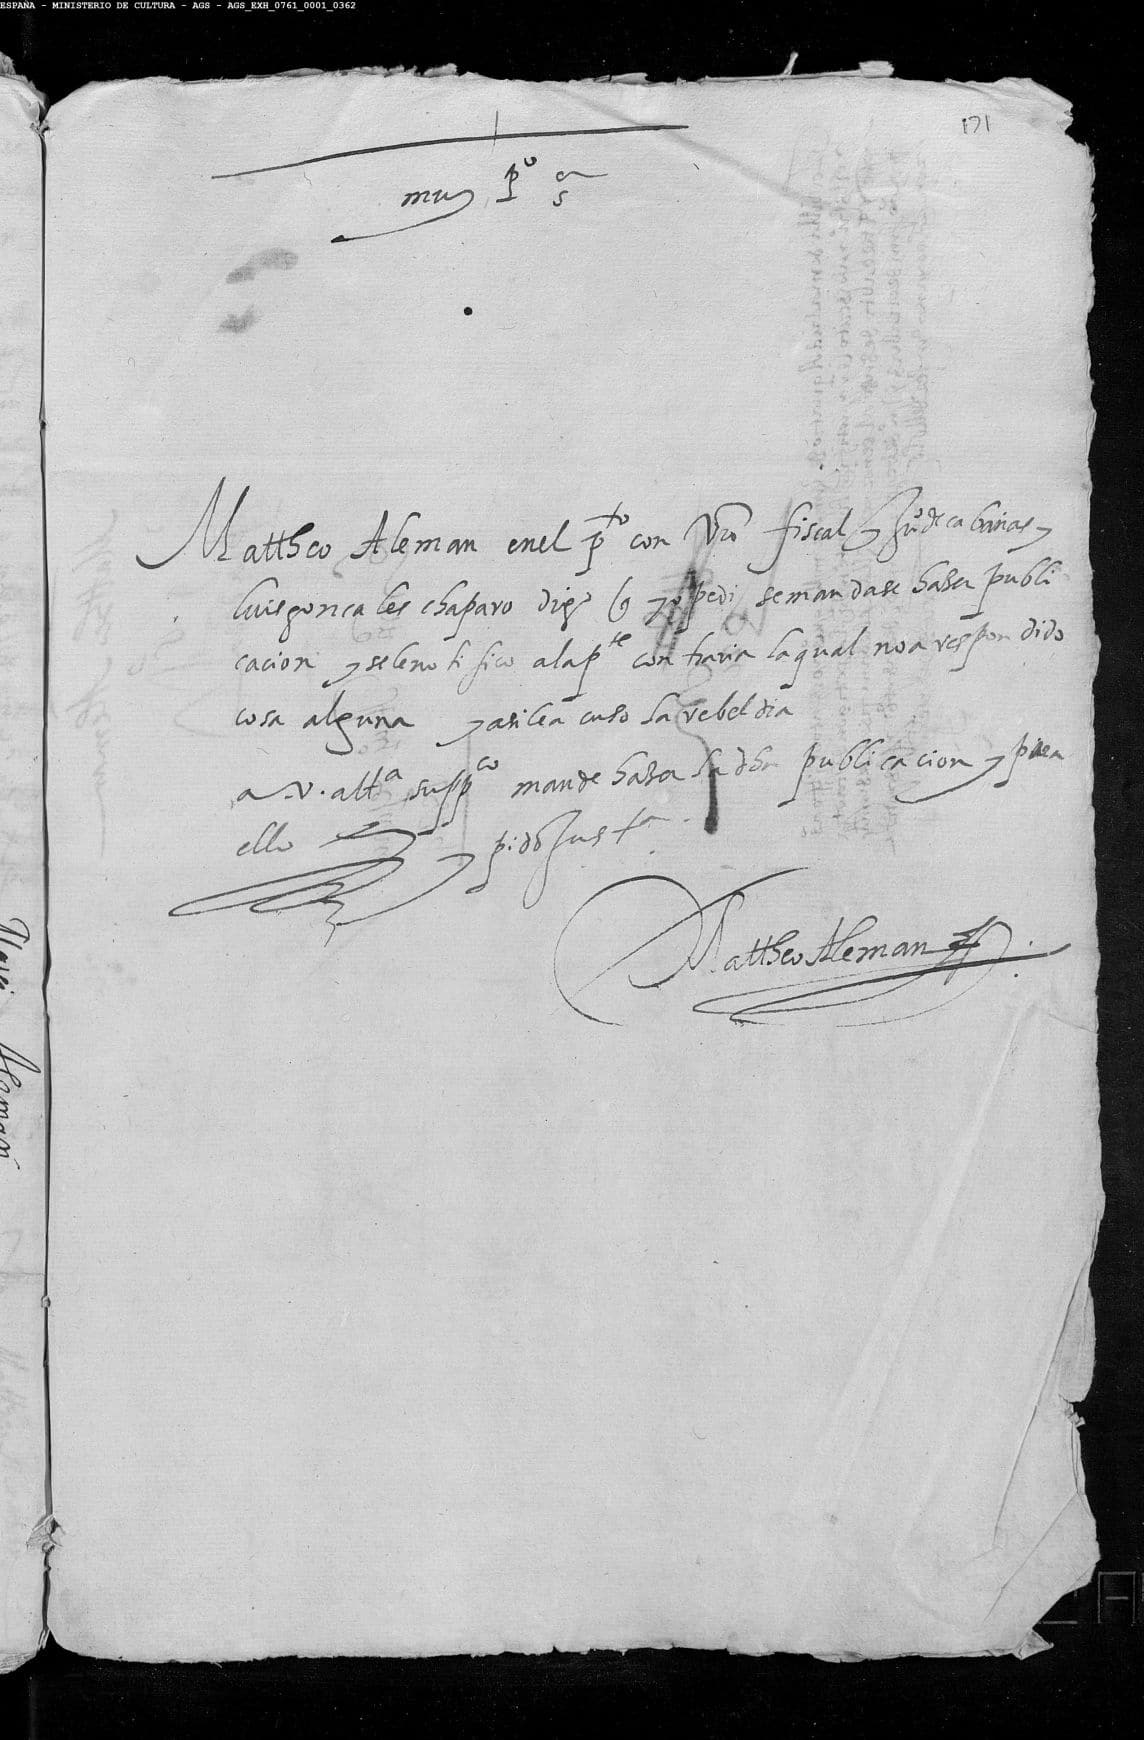 ESPAÑA - MINISTERIO DE CULTURA - AGS - AGS_EXH_0761_0001_0362
171
muy pº sr
Mattheo Aleman en el pto con vro fiscal y juº de cabañas y
luis gonçales chaparo digo q yo pedi se mandase hazer publi
cacion y se le notifico a la pte contraria la qual no a respondido
cosa alguna y asi le a cuso la rebeldia
a .v. altª suppco mande hazer la dha publicacion y para
ello y pido justª
Mattheo Aleman
Aleman